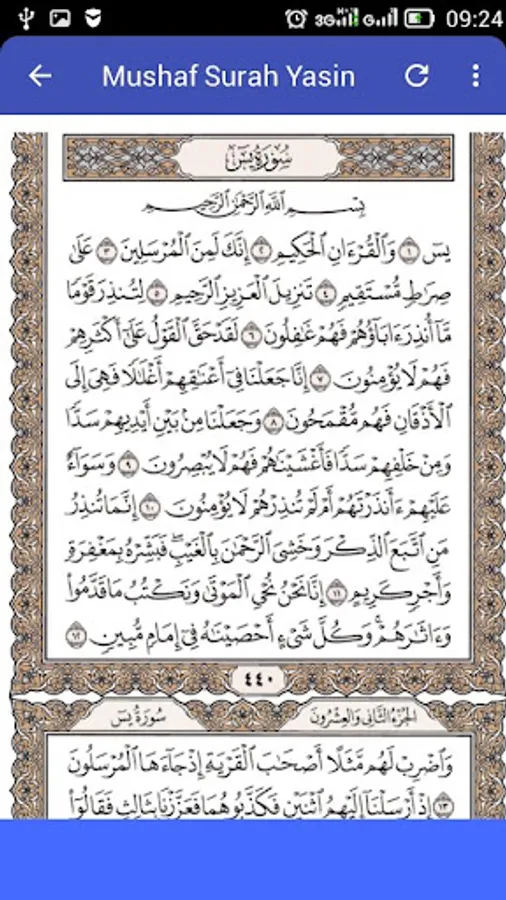 3G H G 09:24
Mushaf Surah Yasin
سُورَةُ يسٓ
بِسۡمِ ٱللَّهِ ٱلرَّحۡمَٰنِ ٱلرَّحِيمِ
يسٓ ١ وَٱلۡقُرۡءَانِ ٱلۡحَكِيمِ ٢ إِنَّكَ لَمِنَ ٱلۡمُرۡسَلِينَ ٣ عَلَىٰ
صِرَٰطٖ مُّسۡتَقِيمٖ ٤ تَنزِيلَ ٱلۡعَزِيزِ ٱلرَّحِيمِ ٥ لِتُنذِرَ قَوۡمٗا
مَّآ أُنذِرَ ءَابَآؤُهُمۡ فَهُمۡ غَٰفِلُونَ ٦ لَقَدۡ حَقَّ ٱلۡقَوۡلُ عَلَىٰٓ أَكۡثَرِهِمۡ
فَهُمۡ لَا يُؤۡمِنُونَ ٧ إِنَّا جَعَلۡنَا فِيٓ أَعۡنَٰقِهِمۡ أَغۡلَٰلٗا فَهِيَ إِلَى
ٱلۡأَذۡقَانِ فَهُم مُّقۡمَحُونَ ٨ وَجَعَلۡنَا مِنۢ بَيۡنِ أَيۡدِيهِمۡ سَدّٗا
وَمِنۡ خَلۡفِهِمۡ سَدّٗا فَأَغۡشَيۡنَٰهُمۡ فَهُمۡ لَا يُبۡصِرُونَ ٩ وَسَوَآءٌ
عَلَيۡهِمۡ ءَأَنذَرۡتَهُمۡ أَمۡ لَمۡ تُنذِرۡهُمۡ لَا يُؤۡمِنُونَ ١٠ إِنَّمَا تُنذِرُ
مَنِ ٱتَّبَعَ ٱلذِّكۡرَ وَخَشِيَ ٱلرَّحۡمَٰنَ بِٱلۡغَيۡبِۖ فَبَشِّرۡهُ بِمَغۡفِرَةٖ
وَأَجۡرٖ كَرِيمٍ ١١ إِنَّا نَحۡنُ نُحۡيِ ٱلۡمَوۡتَىٰ وَنَكۡتُبُ مَا قَدَّمُواْ
وَءَاثَٰرَهُمۡۚ وَكُلَّ شَيۡءٍ أَحۡصَيۡنَٰهُ فِيٓ إِمَامٖ مُّبِينٖ ١٢
٤٤٠
الجُزۡءُ الثَّانِي وَالعِشۡرُونَ سُورَةُ يسٓ
وَٱضۡرِبۡ لَهُم مَّثَلًا أَصۡحَٰبَ ٱلۡقَرۡيَةِ إِذۡ جَآءَهَا ٱلۡمُرۡسَلُونَ
١٣ إِذۡ أَرۡسَلۡنَآ إِلَيۡهِمُ ٱثۡنَيۡنِ فَكَذَّبُوهُمَا فَعَزَّزۡنَا بِثَالِثٖ فَقَالُوٓاْ